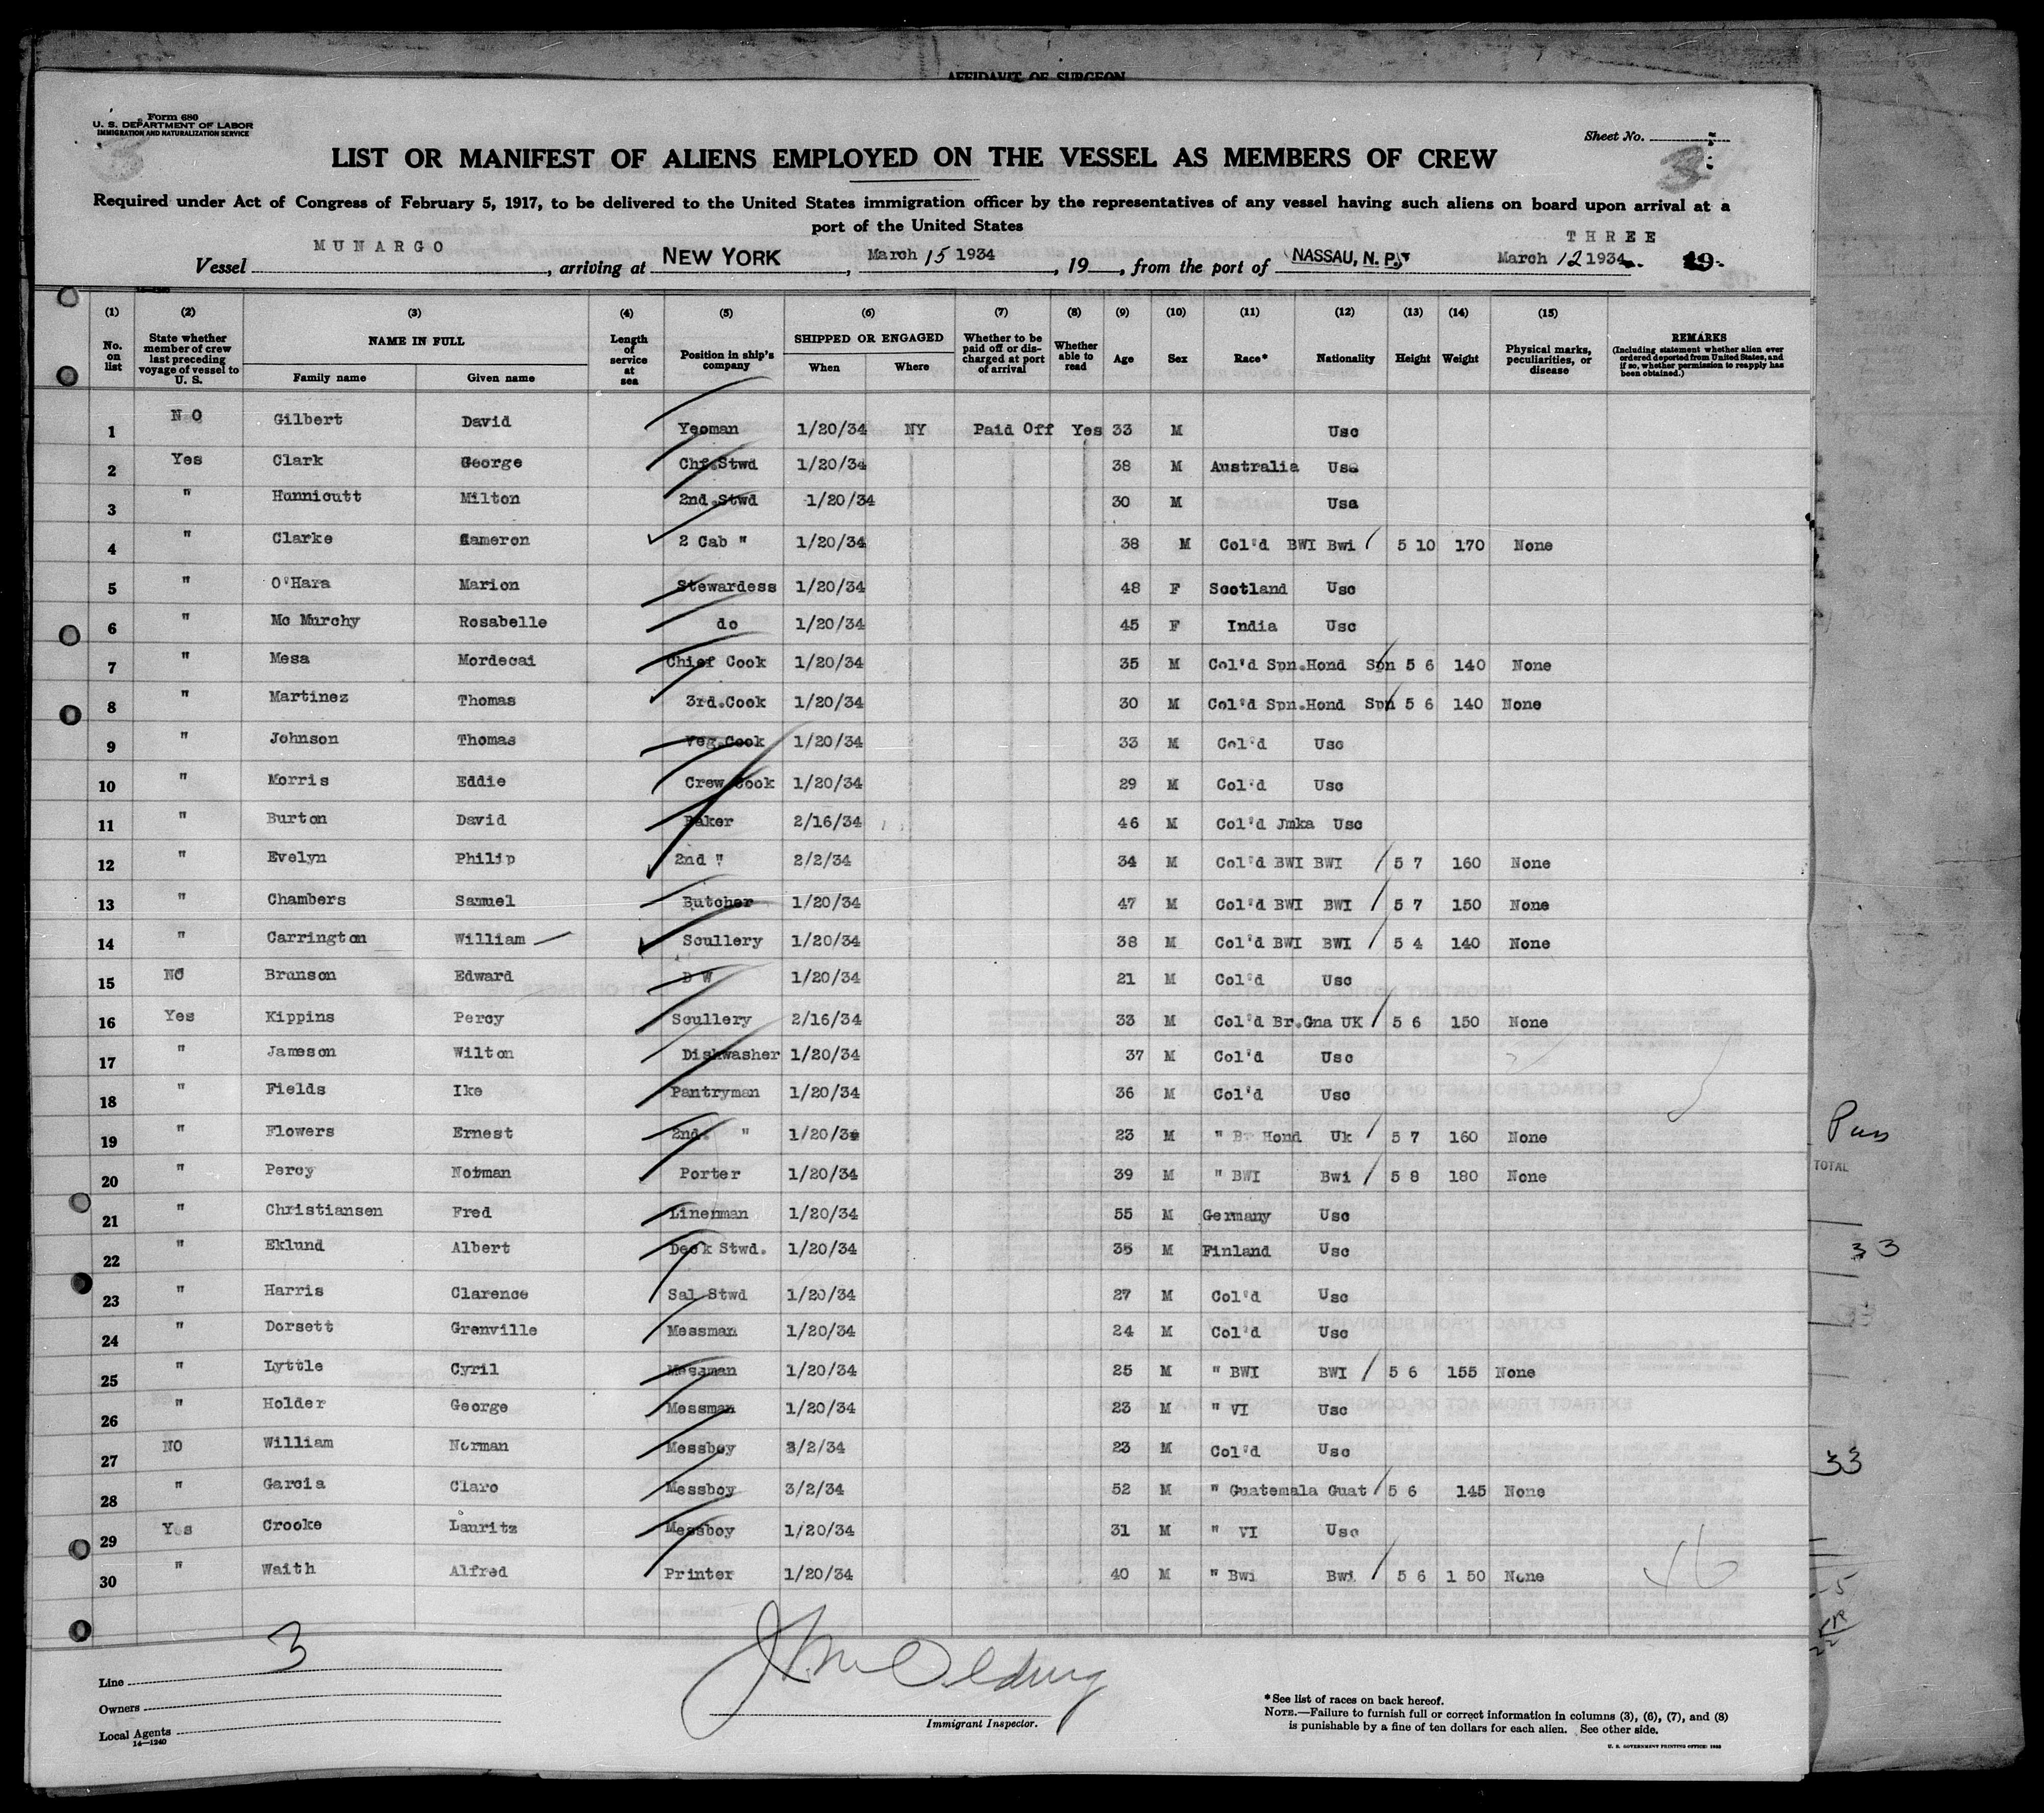 AFFIDAVIT OF SURGEON
Form 680
U. S. DEPARTMENT OF LABOR
IMMIGRATION AND NATURALIZATION SERVICE
Sheet No.
3
LIST OR MANIFEST OF ALIENS EMPLOYED ON THE VESSEL AS MEMBERS OF CREW
Required under Act of Congress of February 5, 1917, to be delivered to the United States immigration officer by the representatives of any vessel having such aliens on board upon arrival at a
port of the United States
THREE
Vessel MUNARGO, arriving at NEW YORK, March 15 1934, 19, from the port of NASSAU, N. P. March 12 1934 19
(1) (2) (3) (4) (5) (6) (7) (8) (9) (10) (11) (12) (13) (14) (15)
No. on list State whether member of crew last preceding voyage of vessel to U. S. NAME IN FULL Family name Given name Length of service at sea Position in ship's company SHIPPED OR ENGAGED When Where Whether to be paid off or discharged at port of arrival Whether able to read Age Sex Race* Nationality Height Weight Physical marks, peculiarities, or disease REMARKS (Including statement whether alien ever ordered deported from United States, and if so, whether permission to reapply has been obtained.)
1 NO Gilbert David Yeoman 1/20/34 NY Paid Off Yes 33 M Usc
2 Yes Clark George Chf.Stwd 1/20/34 38 M Australia Usc
3 " Hunnicutt Milton 2nd.Stwd 1/20/34 30 M Usa
4 " Clarke Cameron 2 Cab " 1/20/34 38 M Col'd BWI Bwi 5 10 170 None
5 " O'Hara Marion Stewardess 1/20/34 48 F Scotland Usc
6 " Mc Murchy Rosabelle do 1/20/34 45 F India Usc
7 " Mesa Mordecai Chief Cook 1/20/34 35 M Col'd Spn.Hond Spn 5 6 140 None
8 " Martinez Thomas 3rd.Cook 1/20/34 30 M Col'd Spn.Hond Spn 5 6 140 None
9 " Johnson Thomas Veg.Cook 1/20/34 33 M Col'd Usc
10 " Morris Eddie Crew Cook 1/20/34 29 M Col'd Usc
11 " Burton David Baker 2/16/34 46 M Col'd Jmka Usc
12 " Evelyn Philip 2nd " 2/2/34 34 M Col'd BWI BWI 5 7 160 None
13 " Chambers Samuel Butcher 1/20/34 47 M Col'd BWI BWI 5 7 150 None
14 " Carrington William Scullery 1/20/34 38 M Col'd BWI BWI 5 4 140 None
15 NO Brunson Edward D W 1/20/34 21 M Col'd Usc
16 Yes Kippins Percy Scullery 2/16/34 33 M Col'd Br.Gna UK 5 6 150 None
17 " Jameson Wilton Dishwasher 1/20/34 37 M Col'd Usc
18 " Fields Ike Pantryman 1/20/34 36 M Col'd Usc
19 " Flowers Ernest 2nd. " 1/20/34 23 M " Br Hond Uk 5 7 160 None
20 " Percy Norman Porter 1/20/34 39 M " BWI Bwi 5 8 180 None
21 " Christiansen Fred Linenman 1/20/34 55 M Germany Usc
22 " Eklund Albert Deck Stwd. 1/20/34 35 M Finland Usc
23 " Harris Clarence Sal Stwd 1/20/34 27 M Col'd Usc
24 " Dorsett Grenville Messman 1/20/34 24 M Col'd Usc
25 " Lyttle Cyril Messman 1/20/34 25 M " BWI BWI 5 6 155 None
26 " Holder George Messman 1/20/34 23 M " VI Usc
27 NO William Norman Messboy 3/2/34 23 M Col'd Usc
28 " Garcia Claro Messboy 3/2/34 52 M " Guatemala Guat 5 6 145 None
29 Yes Crooke Lauritz Messboy 1/20/34 31 M " VI Usc
30 " Waith Alfred Printer 1/20/34 40 M " Bwi Bwi 5 6 1 50 None
TOTAL
33
33
16
3
Line
Owners
Local Agents
14—1240
Immigrant Inspector.
*See list of races on back hereof.
NOTE.—Failure to furnish full or correct information in columns (3), (6), (7), and (8)
is punishable by a fine of ten dollars for each alien. See other side.
U. S. GOVERNMENT PRINTING OFFICE: 1932